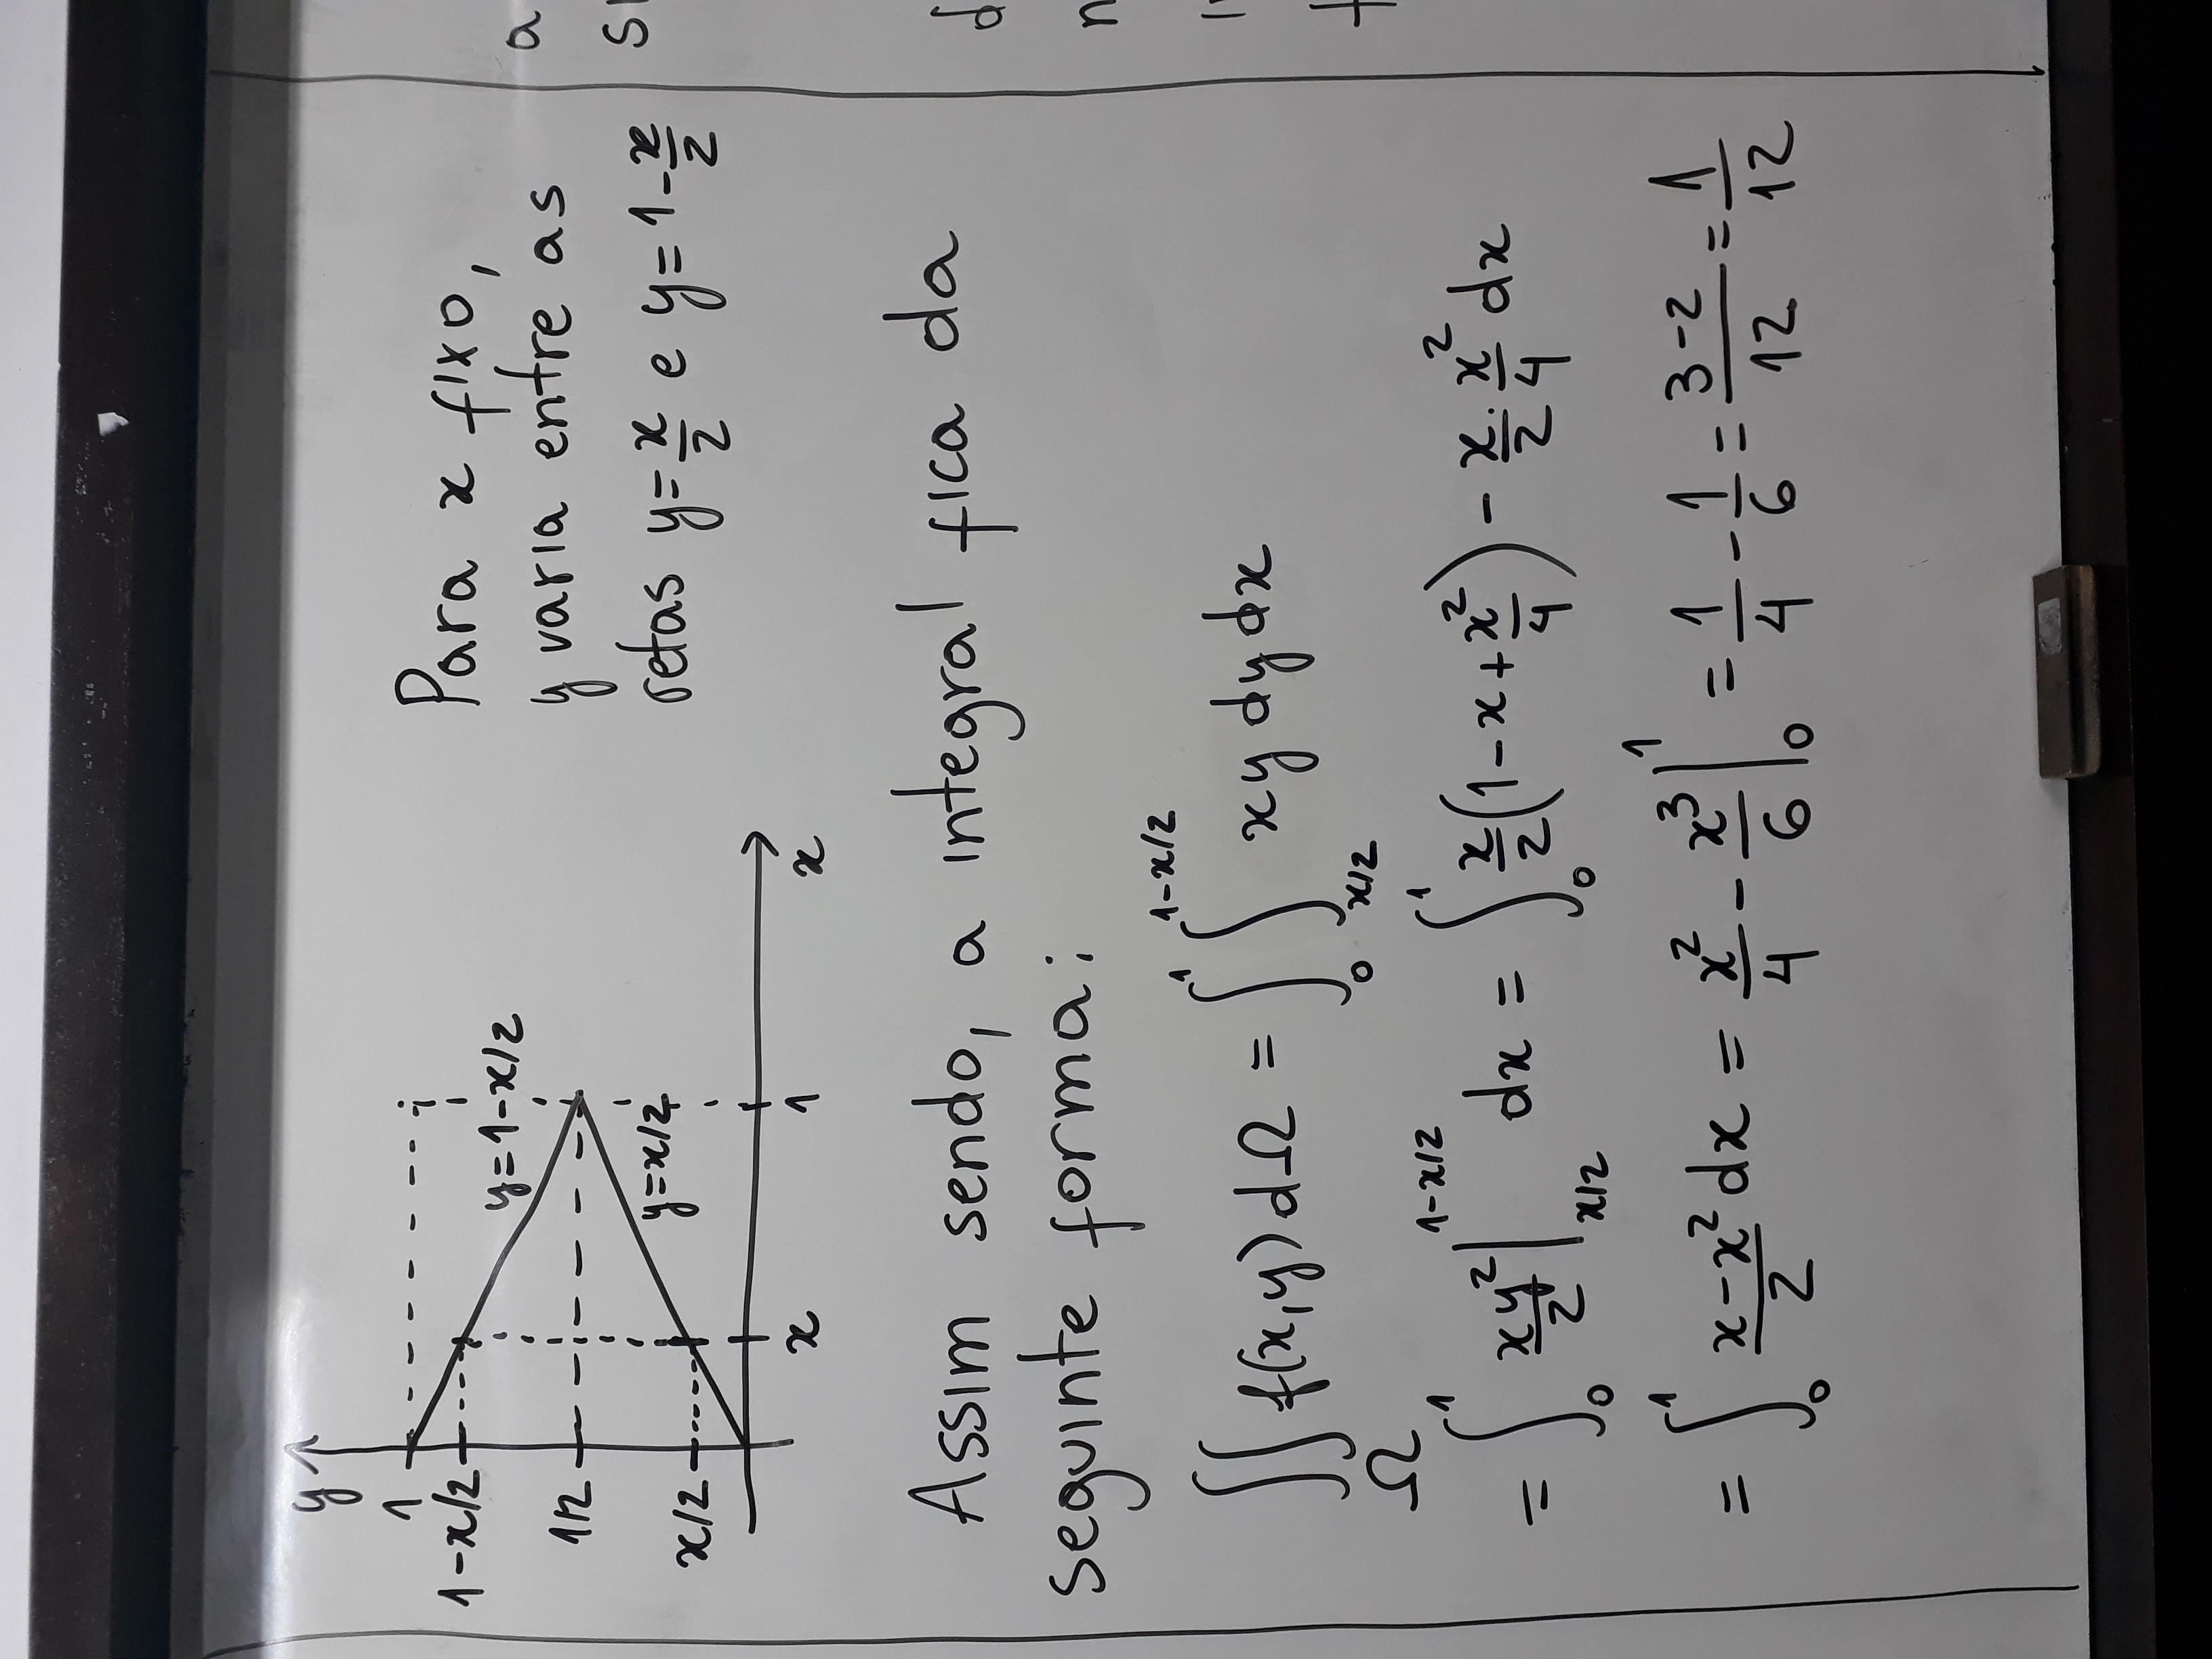 y
1
1-x/2
y=1-x/2
1/2
y=x/2
x/2
x 1 x
Para x fixo,
y varia entre as
retas y=x/2 e y=1-x/2
Assim sendo, a integral fica da
seguinte forma:
∬_Ω f(x,y)dΩ = ∫_0^1 ∫_{x/2}^{1-x/2} xy dy dx
= ∫_0^1 xy²/2 |_{x/2}^{1-x/2} dx = ∫_0^1 x/2(1-x+x²/4) - x/2·x²/4 dx
= ∫_0^1 (x-x²)/2 dx = x²/4 - x³/6 |_0^1 = 1/4 - 1/6 = (3-2)/12 = 1/12
a